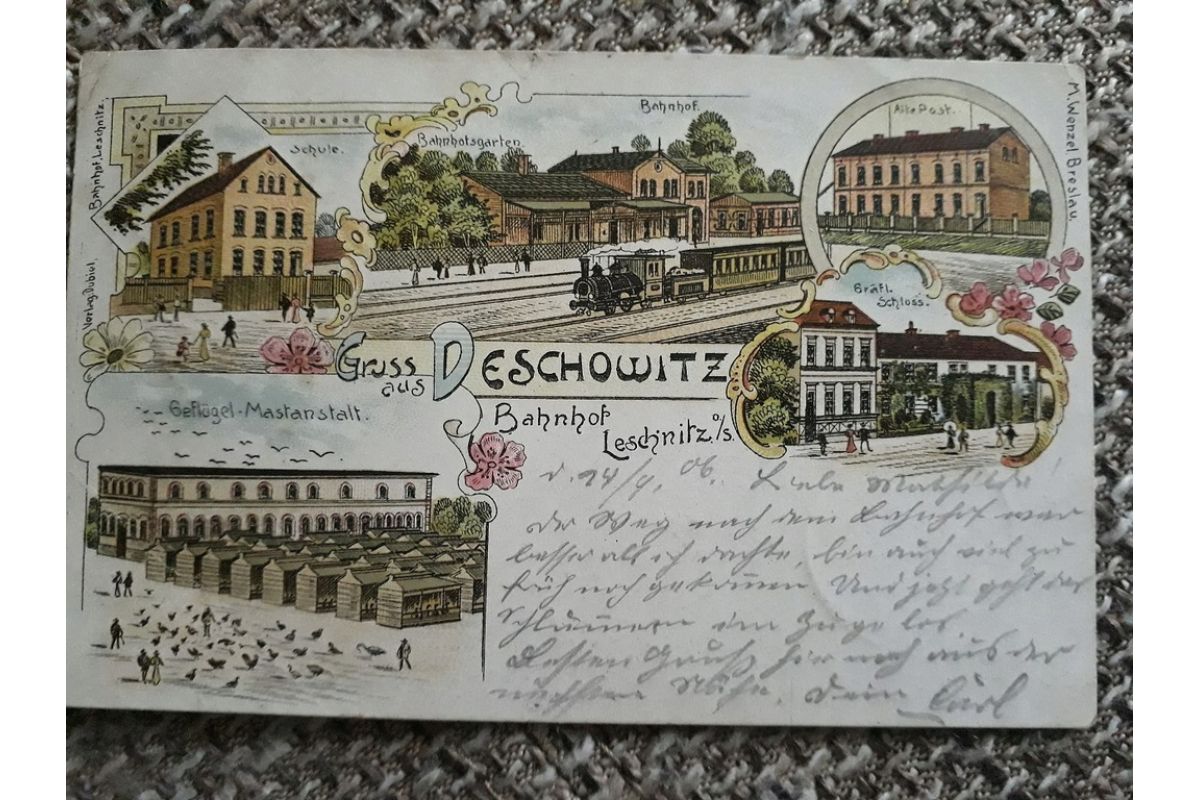 Bahnhof, Leschnitz.
Verlag Dubiel.
Schule.
Bahnhofsgarten.
Bahnhof.
Alte Post.
M. Wenzel Breslau.
Gräfl.
Schloss.
Gruss
aus DESCHOWITZ
Bahnhof
Leschnitz. o/s.
Geflügel-Mastanstalt.
d. 24/9. 06. Liebe Mathilde
der Weg nach dem Bahnhof war
besser als ich dachte, bin auch viel zu
früh noch gekommen. Und jetzt geht das
Schlummern im Zuge los
Besten Gruß hier noch aus der
Nähe. Dein Carl